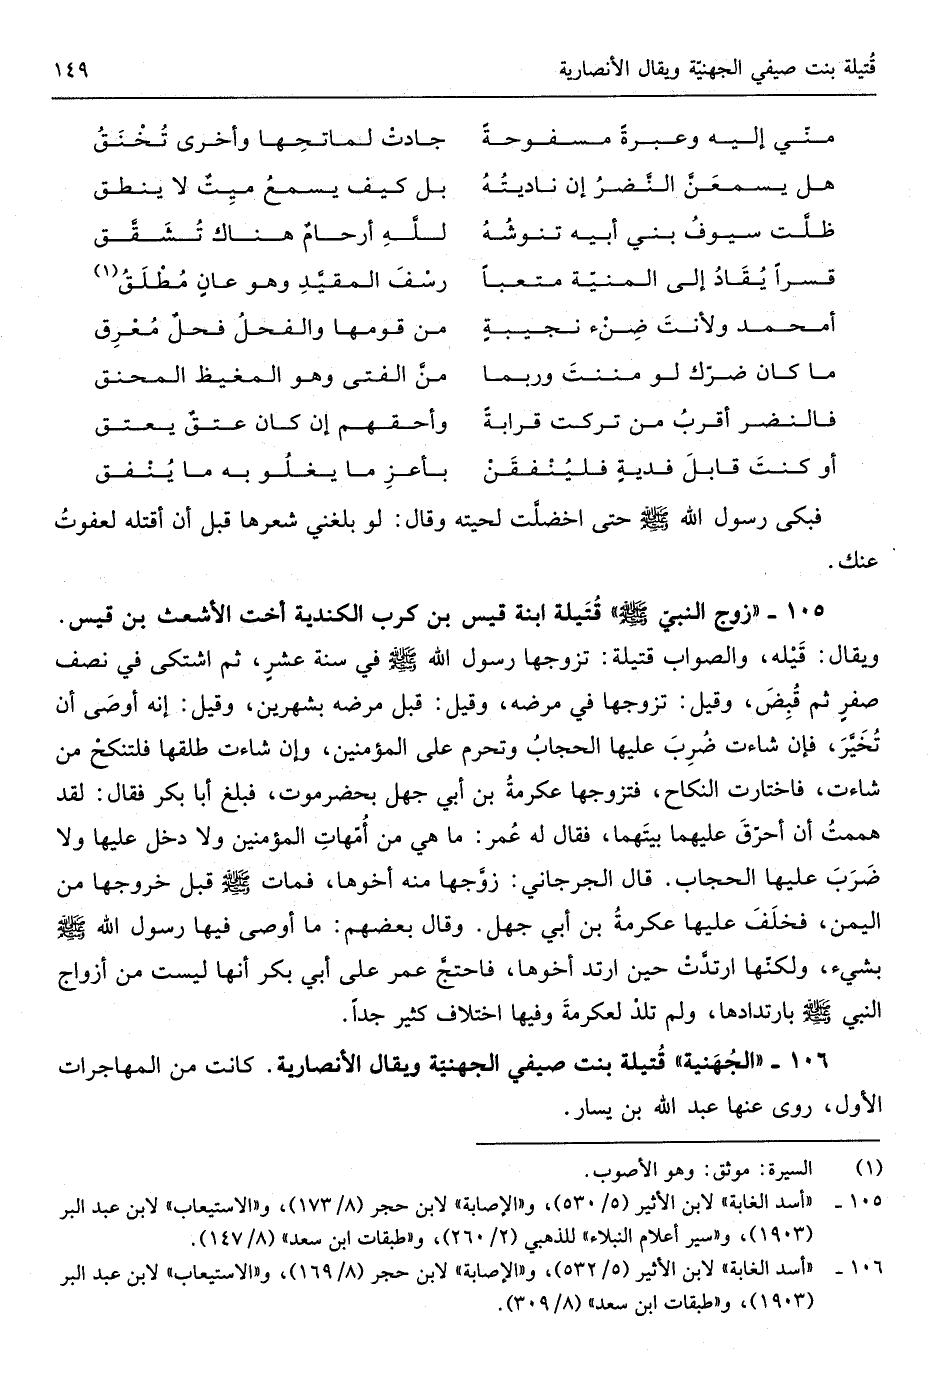 قُتيلة بنت صيفي الجهنيّة ويقال الأنصارية ١٤٩
منّي إليه وعبرةً مسفوحةً جادتْ لماتحها وأخرى تُخْنَقُ
هل يسمعَنَّ النَّضرُ إن ناديتُهُ بل كيف يسمعُ ميتٌ لا ينطق
ظلَّت سيوفُ بني أبيه تنوشُهُ للَّهِ أرحامٌ هناك تُشقَّق
قسراً يُقَادُ إلى المنيّة متعباً رسْفَ المقيَّدِ وهو عانٍ مُطْلَقُ(١)
أمحمد ولأنتَ ضِنْء نجيبةٍ من قومها والفحلُ فحلٌ مُعْرِق
ما كان ضرّك لو مننتَ وربما منَّ الفتى وهو المغيظ المحنق
فالنضر أقربُ من تركت قرابةً وأحقهم إن كان عتقٌ يعتق
أو كنتَ قابلَ فديةٍ فليُنْفقَنْ بأعزِ ما يغلُو به ما يُنْفق
فبكى رسول الله ﷺ حتى اخضلَّت لحيته وقال: لو بلغني شعرها قبل أن أقتله لعفوتُ
عنك.
١٠٥ ـ «زوج النبيّ ﷺ» قُتيلة ابنة قيس بن كرب الكندية أخت الأشعث بن قيس.
ويقال: قَيْله، والصواب قتيلة: تزوجها رسول الله ﷺ في سنة عشرٍ، ثم اشتكى في نصف
صفرٍ ثم قُبِضَ، وقيل: تزوجها في مرضه، وقيل: قبل مرضه بشهرين، وقيل: إنه أوصَى أن
تُخَيَّرَ، فإن شاءت ضُربَ عليها الحجابُ وتحرم على المؤمنين، وإن شاءت طلقها فلتنكحْ من
شاءت، فاختارت النكاح، فتزوجها عكرمةُ بن أبي جهل بحضرموت، فبلغ أبا بكر فقال: لقد
هممتُ أن أحرّقَ عليهما بيتَهما، فقال له عُمر: ما هي من أُمّهاتِ المؤمنين ولا دخل عليها ولا
ضَرَبَ عليها الحجاب. قال الجرجاني: زوَّجها منه أخوها، فمات ﷺ قبل خروجها من
اليمن، فخلَفَ عليها عكرمةُ بن أبي جهل. وقال بعضهم: ما أوصى فيها رسول الله ﷺ
بشيء، ولكنّها ارتدَّتْ حين ارتد أخوها، فاحتجَّ عمر على أبي بكر أنها ليست من أزواج
النبي ﷺ بارتدادها، ولم تلدْ لعكرمةَ وفيها اختلاف كثير جداً.
١٠٦ ـ «الجُهَنية» قُتيلة بنت صيفي الجهنيّة ويقال الأنصارية. كانت من المهاجرات
الأول، روى عنها عبد الله بن يسار.
(١) السيرة: موثق: وهو الأصوب.
١٠٥ ـ «أسد الغابة» لابن الأثير (٥/ ٥٣٠)، و«الإصابة» لابن حجر (٨/ ١٧٣)، و«الاستيعاب» لابن عبد البر
(١٩٠٣)، و«سير أعلام النبلاء» للذهبي (٢/ ٢٦٠)، و«طبقات ابن سعد» (٨/ ١٤٧).
١٠٦ ـ «أسد الغابة» لابن الأثير (٥/ ٥٣٢)، و«الإصابة» لابن حجر (٨/ ١٦٩)، و«الاستيعاب» لابن عبد البر
(١٩٠٣)، و«طبقات ابن سعد» (٨/ ٣٠٩).